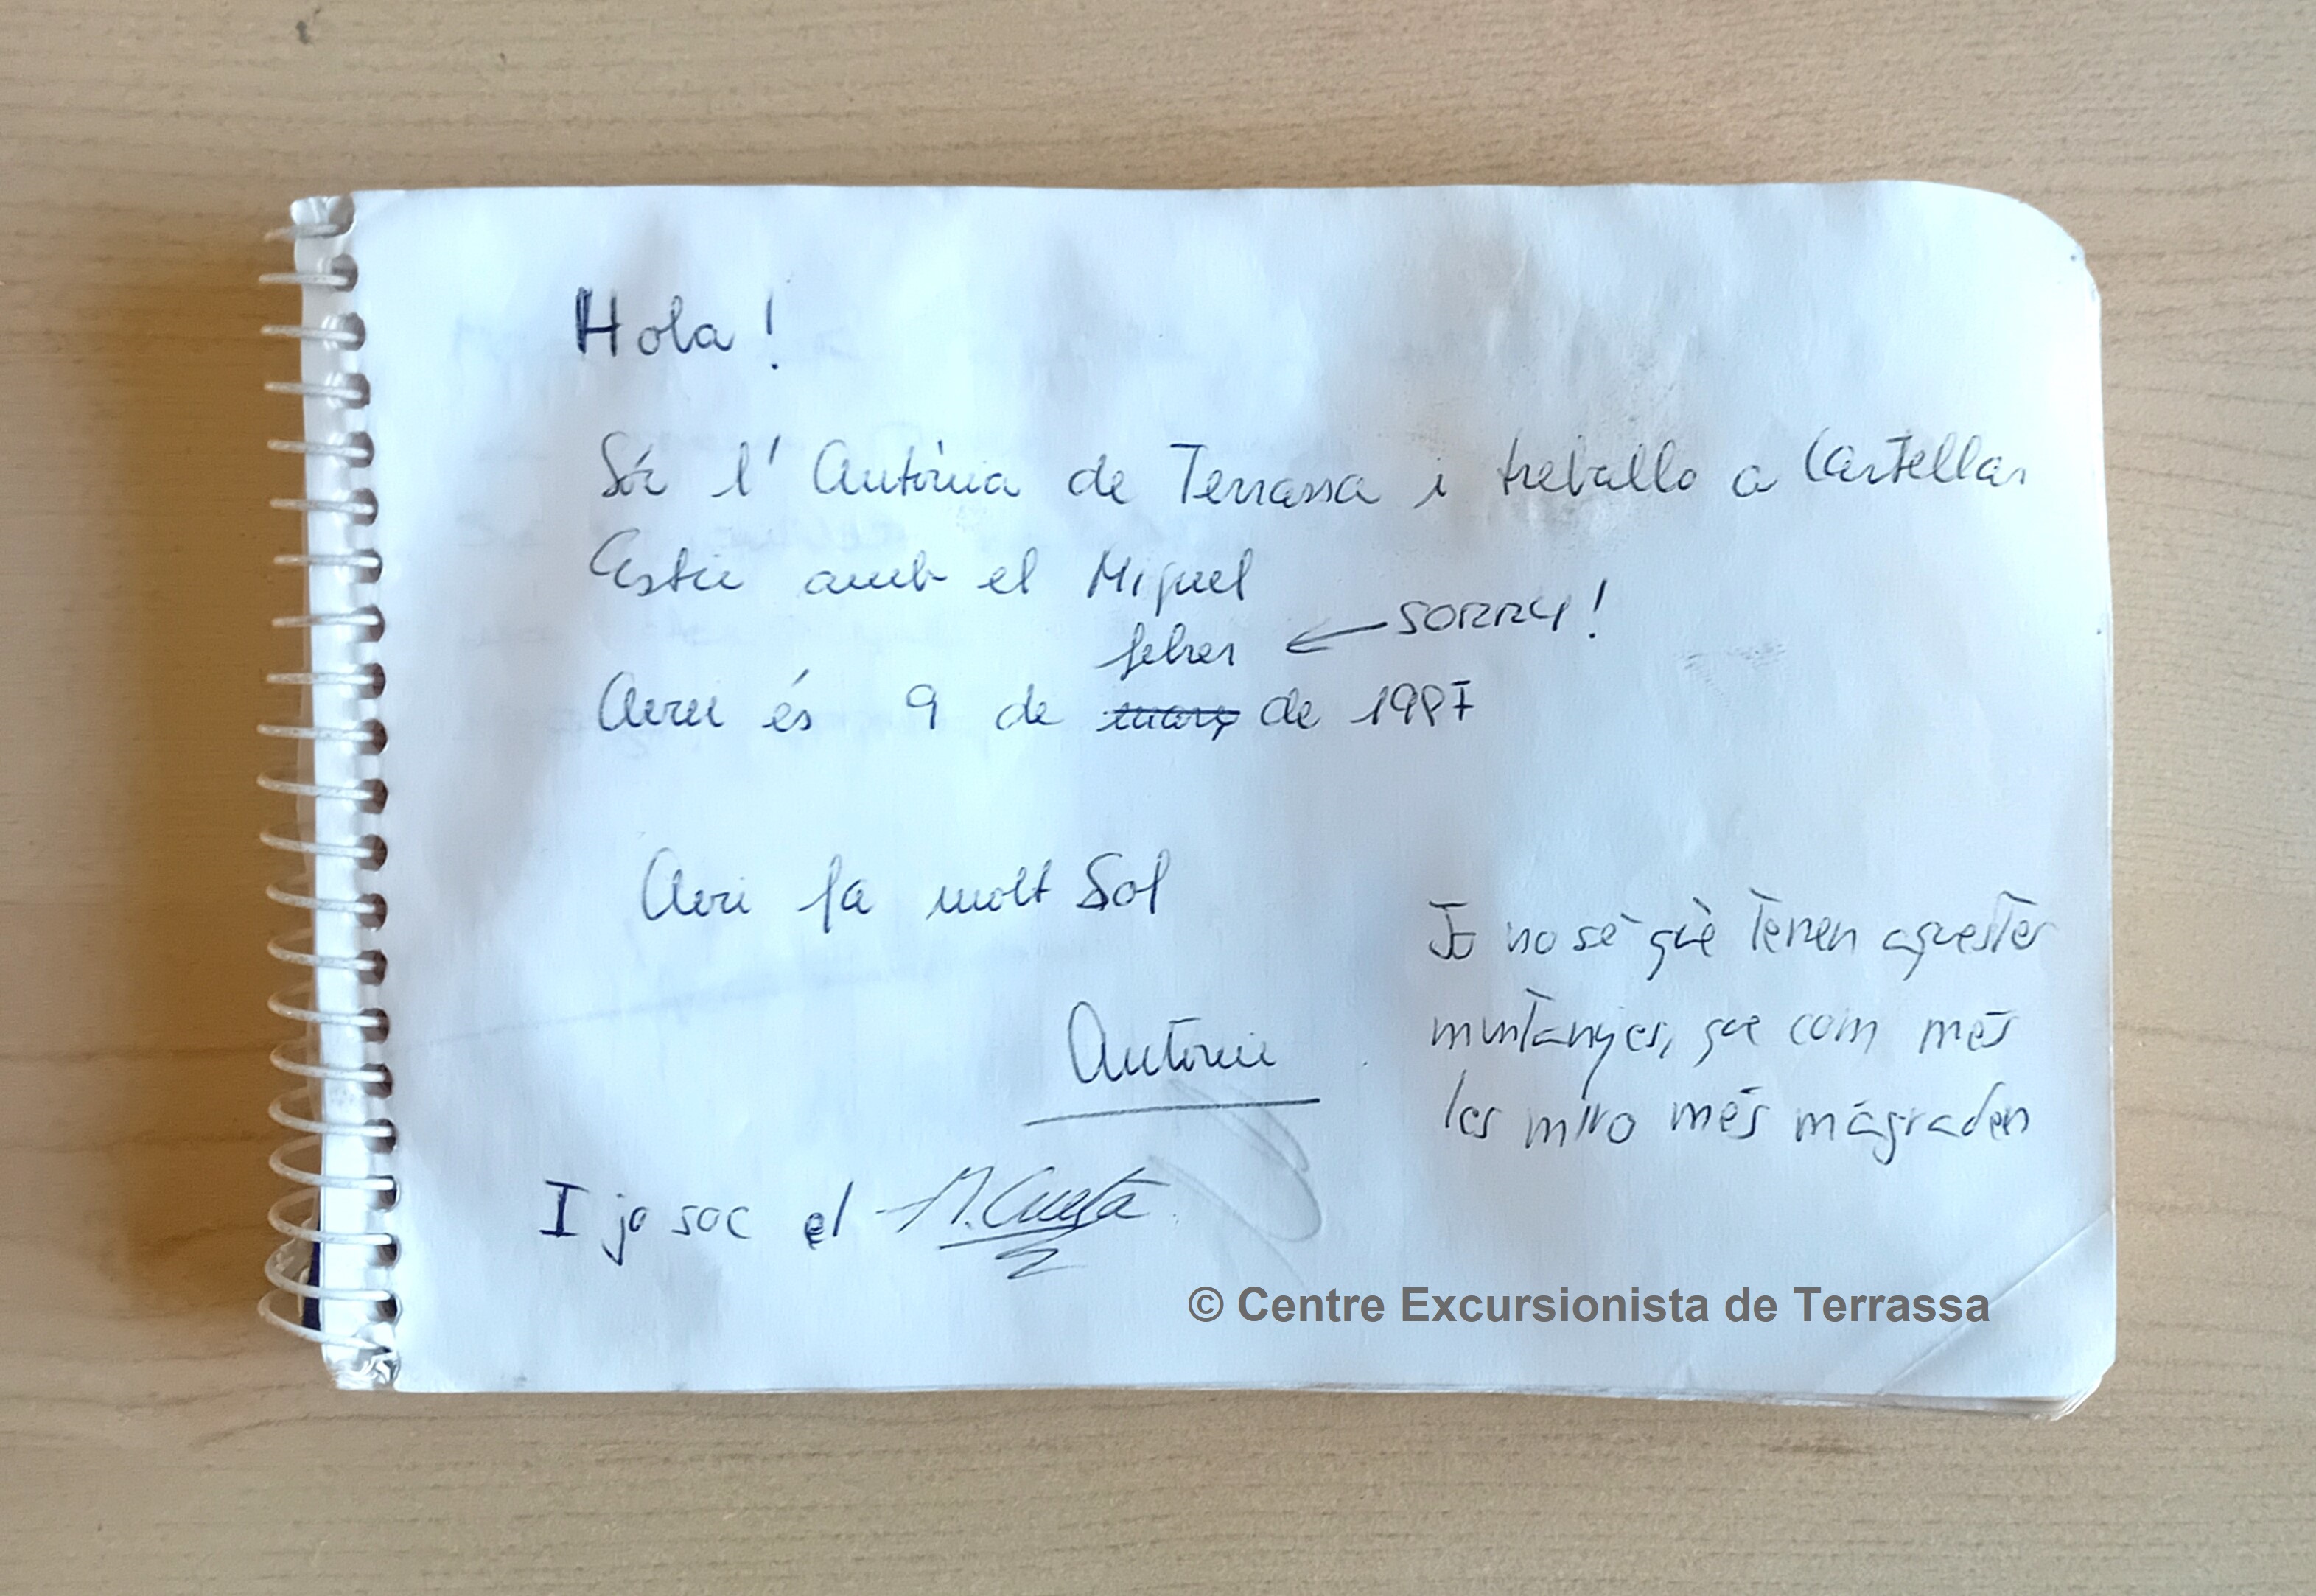 Hola !
Sóc l' Antònia de Terrassa i treballo a Castellar
Estic amb el Miquel
febrer ← SORRY!
Avui és 9 de març de 1987
Avui fa molt Sol
Antònia
Jo no sé què tenen aquestes
muntanyes, que com més
les miro més m'agraden
I jo soc el M. Cuesta
© Centre Excursionista de Terrassa